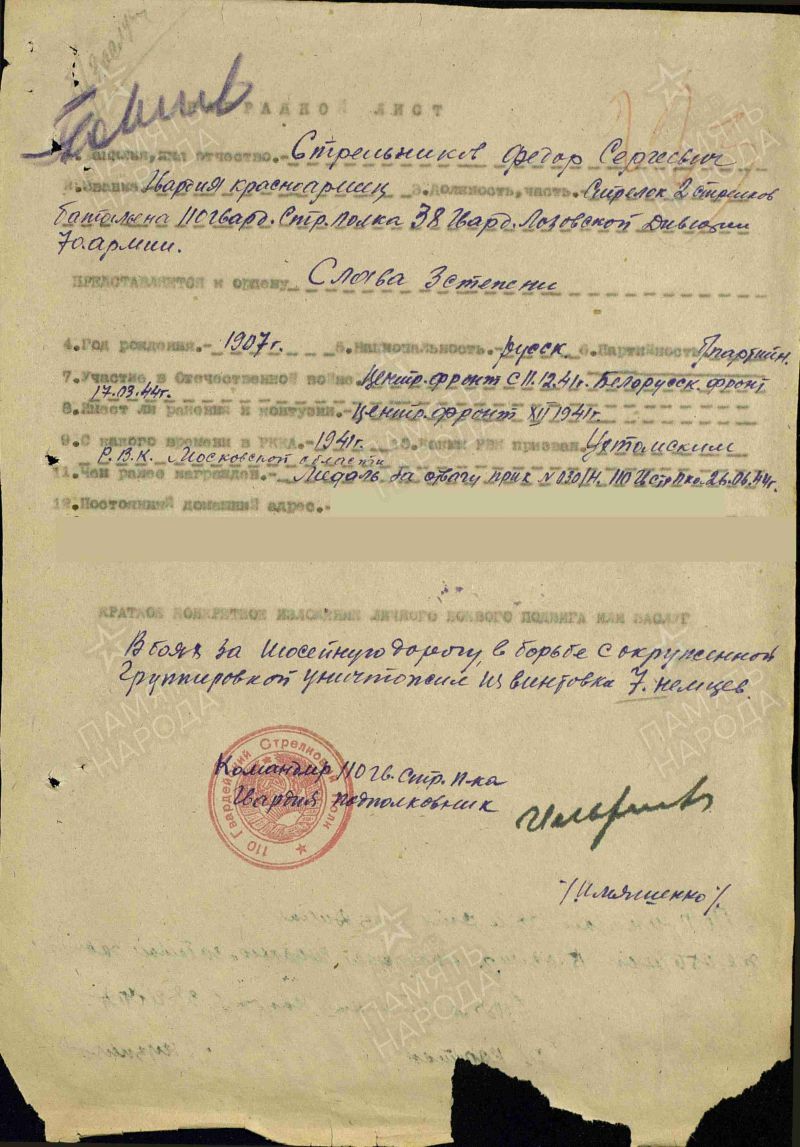 НАГРАДНОЙ ЛИСТ
1. Фамилия, имя отчество.- Стрельников Федор Сергеевич
2. Звание Гвардия красноармеец 3. Должность, часть. Стрелок 2 стрелков
батальена 110 гвард. Стр. Полка 38 Гвард. Лозовской Дивизии
70 армии.
ПРЕДСТАВЛЯЕТСЯ к ордену Слава 3 степени
4. Год рождения.- 1907 г. 5. Национальность.- русск 6. Партийность
7. Участие в Отечественной войне Центр. фронт с 11.12.41г. Белорусск. фронт
17.03.44г.
8. Имеет ли ранения и контузии.- Центр. фронт XII 1941г.
9. С какого времени в РККА.- 1941 г. 10. Каким РВК призван Ухтомским
Р.В.К. Московской области
11. Чем ранее награжден.- Медаль За отвагу прик №030/Н. 110 26.06.44г.
12. Постоянный домашний адрес.-
КРАТКОЕ КОНКРЕТНОЕ ИЗЛОЖЕНИЕ ЛИЧНОГО БОЕВОГО ПОДВИГА ИЛИ ЗАСЛУГ
В боях за шосейную дорогу, в борьбе с окруженной
Группировкой уничтожил из винтовка 7. немцев.
Командир 110 гв. стр. п-ка
Гвардия подполковник
110 Гвардейский Стрелковый Полк
ПАМЯТЬ НАРОДА